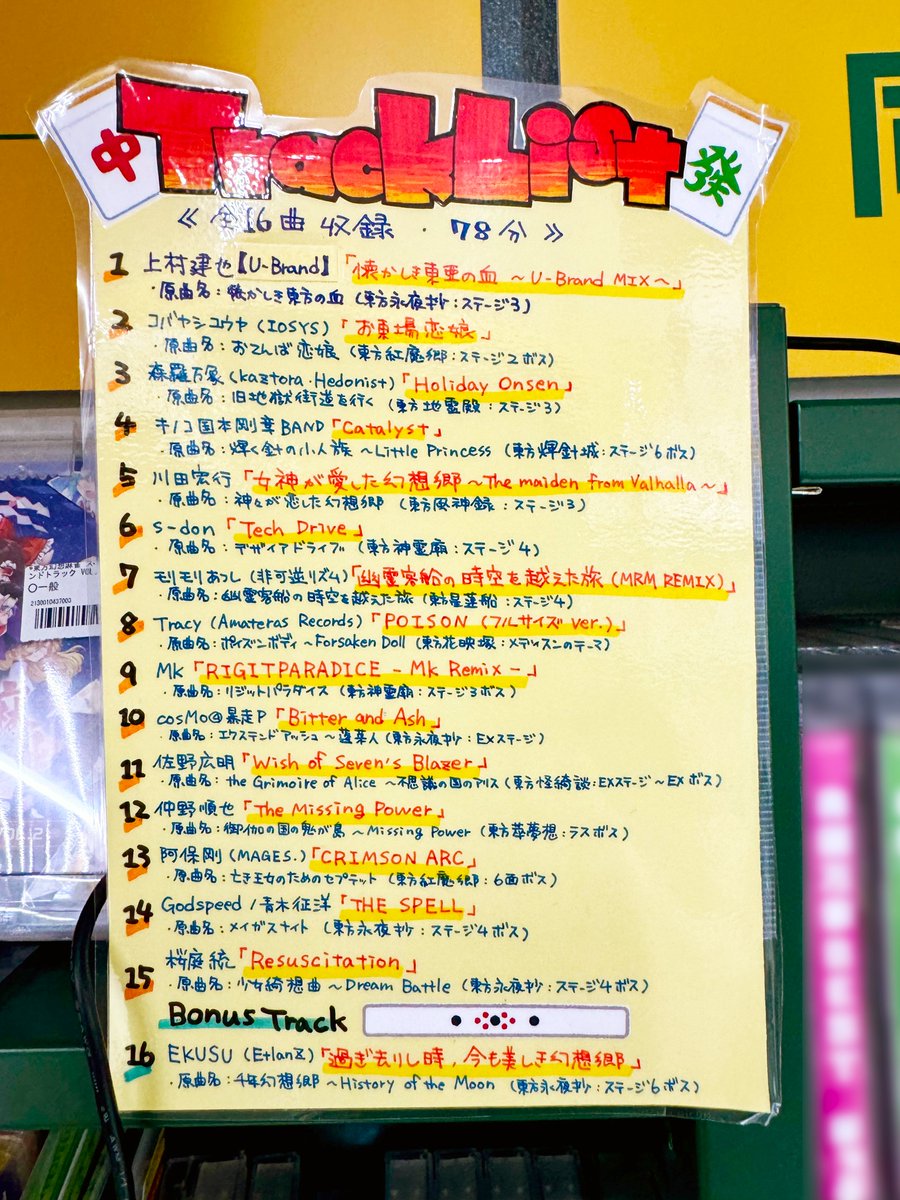 中
TrackList
發
≪ 全16曲 収録 ・ 78分 ≫
1 上村建也【U-Brand】「懐かしき東亜の血 ～U-Brand MIX～」
・原曲名：懐かしき東方の血 (東方永夜抄：ステージ3)
2 コバヤシユウヤ (IOSYS) 「お東場恋娘」
・原曲名：おてんば恋娘 (東方紅魔郷：ステージ2ボス)
3 森羅万象 (kaztora・Hedonist) 「Holiday Onsen」
・原曲名：旧地獄街道を行く (東方地霊殿：ステージ3)
4 キノコ国本剛章BAND 「Catalyst」
・原曲名：輝く針の小人族 ～Little Princess (東方輝針城：ステージ6ボス)
5 川田宏行 「女神が愛した幻想郷 ～The maiden from Valhalla～」
・原曲名：神々が恋した幻想郷 (東方風神録：ステージ3)
6 s-don 「Tech Drive」
・原曲名：デザイアドライブ (東方神霊廟：ステージ4)
7 モリモリあつし (非可逆リズム) 「幽霊客船の時空を越えた旅 (MRM REMIX)」
・原曲名：幽霊客船の時空を越えた旅 (東方星蓮船：ステージ4)
8 Tracy (Amateras Records) 「POISON (フルサイズ ver.)」
・原曲名：ポイズンボディ ～Forsaken Doll (東方花映塚：メディスンのテーマ)
9 MK 「RIGITPARADICE - Mk Remix -」
・原曲名：リジットパラダイス (東方神霊廟：ステージ3ボス)
10 cosMo@暴走P 「Bitter and Ash」
・原曲名：エクステンドアッシュ ～蓬莱人 (東方永夜抄：EXステージ)
11 佐野広明 「Wish of Seven's Blazer」
・原曲名：the Grimoire of Alice ～不思議の国のアリス (東方怪綺談：EXステージ～EXボス)
12 仲野順也 「The Missing Power」
・原曲名：御伽の国の鬼が島 ～Missing Power (東方萃夢想：ラスボス)
13 阿保剛 (MAGES.) 「CRIMSON ARC」
・原曲名：亡き王女のためのセプテット (東方紅魔郷：6面ボス)
14 Godspeed / 青木征洋 「THE SPELL」
・原曲名：メイガスナイト (東方永夜抄：ステージ4ボス)
15 桜庭統 「Resuscitation」
・原曲名：少女綺想曲 ～Dream Battle (東方永夜抄：ステージ4ボス)
Bonus Track
16 EKUSU (EtlanZ) 「過ぎ去りし時，今も美しき幻想郷」
・原曲名：千年幻想郷 ～History of the Moon (東方永夜抄：ステージ6ボス)
ンドトラック VOL.
〇一般
2130010437003